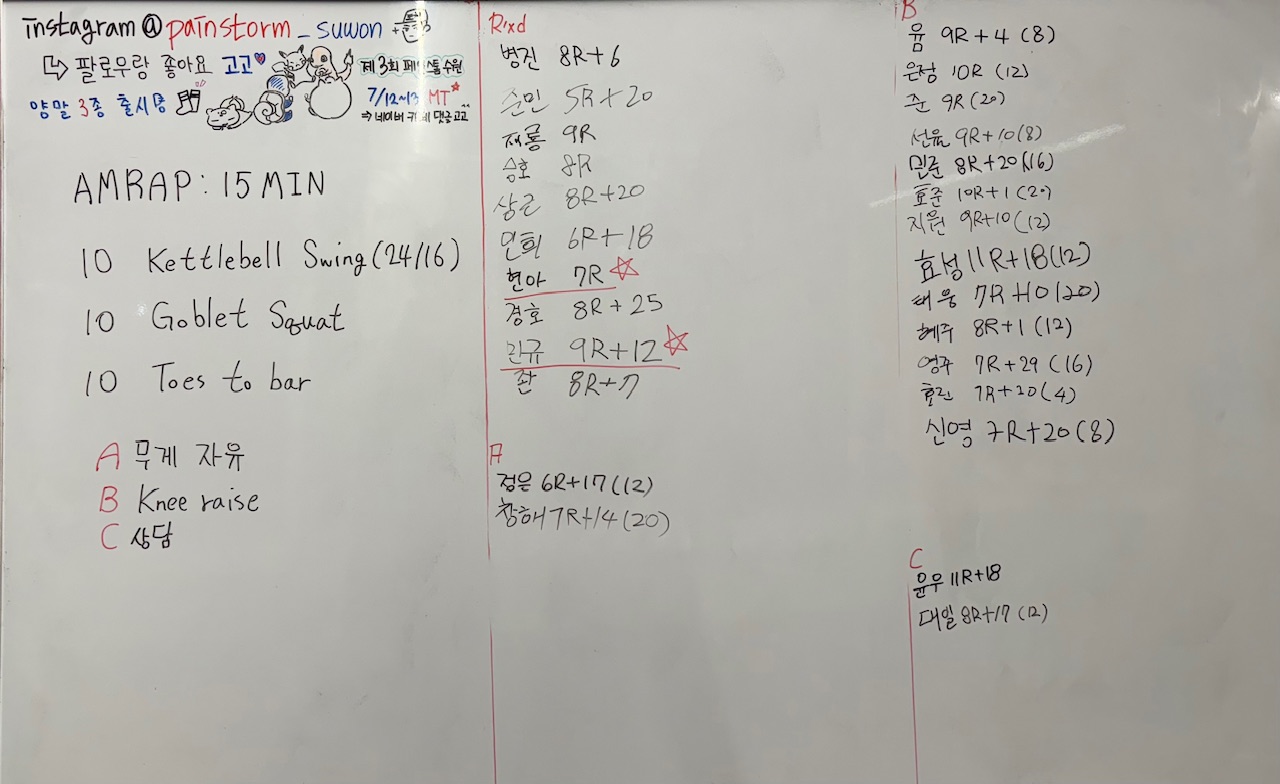 instagram@painstorm_suwon
팔로우랑 좋아요 고고
제3회 페인스톰 수원
양말 3종 출시중
7/12~13 MT
⇒ 네이버 카페 댓글 고고
AMRAP: 15 MIN
10 Kettlebell Swing (24/16)
10 Goblet Squat
10 Toes to bar
A 무게 자유
B Knee raise
C 상담
Rxd
병진 8R+6
순민 5R+20
재룡 9R
승호 8R
상근 8R+20
민희 6R+18
현아 7R
경호 8R+25
민규 9R+12
좐 8R+7
A
정은 6R+17(12)
창해 7R+14(20)
B
윰 9R+4(8)
은정 10R(12)
준 9R(20)
선율 9R+10(8)
민준 8R+20(16)
효준 10R+1(20)
지원 9R+10(12)
효성 11R+18(12)
태웅 7R+10(20)
혜주 8R+1(12)
영주 7R+29(16)
효린 7R+20(4)
신영 7R+20(8)
C
윤우 11R+18
대일 8R+17(12)